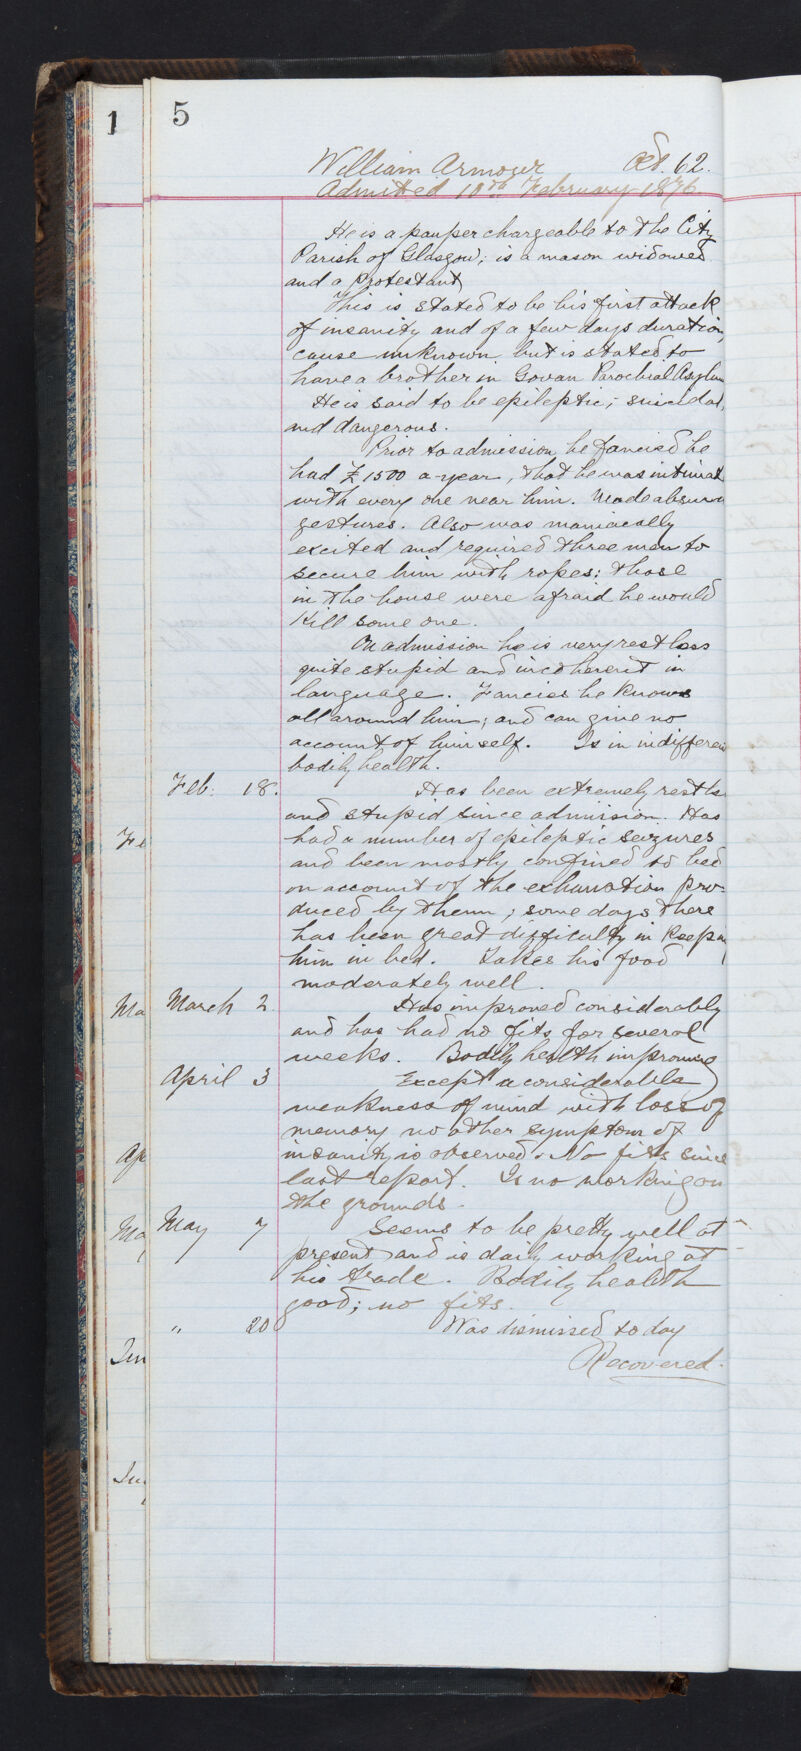 1
5
William Armour Aet. 62.
Admitted 10th February 1876.
He is a pauper chargeable to the City
Parish of Glasgow; is a mason widowed
and a Protestant
This is stated to be his first attack
of insanity and of a few days duration,
cause unknown but is stated to
have a brother in Govan Parochial Asylum
He is said to be epileptic; suicidal,
and dangerous.
Prior to admission he fancied he
had £1500 a year, that he was intimate
with every one near him. Made absurd
gestures. Also was maniacally
excited and required three men to
secure him with ropes: those
in the house were afraid he would
Kill some one.
On admission he is very restless
quite stupid and incoherent in
language. Fancies he knows
all around him; and can give no
account of himself. Is in indifferent
bodily health.
Feb: 18. Has been extremely restless
and stupid since admission. Has
Fe
had a number of epileptic seizures
and been mostly confined to bed
on account of the exhaustion pro-
duced by them; some days there
has been great difficulty in keeping
him in bed. Takes his food
moderately well.
Ma
March 2. Has improved considerably
and has had no fits for several
weeks. Bodily health improving
April 3 Except a considerable
weakness of mind with loss of
memory no other symptom of
Ap
insanity is observed. No fits since
last report. Is no working on
the grounds.
Ma
May 7 Seems to be pretty well at
present and is daily working at
his trade. Bodily health
good; no fits.
" 20 Was dismissed today
Jun
Recovered.